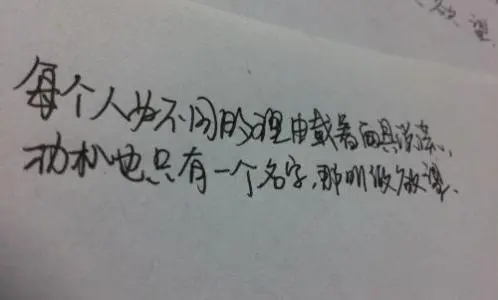 每个人为不同的理由戴着面具说谎,
动机也只有一个名字,那叫做欲望.